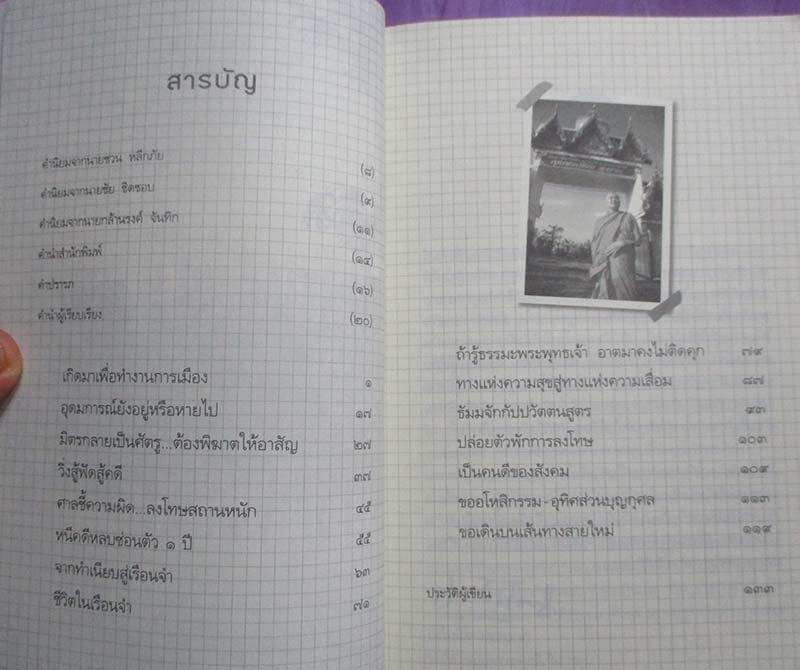 สารบัญ
คำนิยมจากนายชวน หลีกภัย (๘)
คำนิยมจากนายชัย ชิดชอบ (๙)
คำนิยมจากนายกล้านรงค์ จันทิก (๑๑)
คำนำสำนักพิมพ์ (๑๔)
คำปรารภ (๑๖)
คำนำผู้เรียบเรียง (๒๐)
เกิดมาเพื่อทำงานการเมือง ๑
อุดมการณ์ยังอยู่หรือหายไป ๑๗
มิตรกลายเป็นศัตรู...ต้องพิฆาตให้อาสัญ ๒๗
วิ่งสู้ฟัดสู้คดี ๓๗
ศาลชี้ความผิด...ลงโทษสถานหนัก ๔๕
หนีคดีหลบซ่อนตัว ๑ ปี ๕๕
จากทำเนียบสู่เรือนจำ ๖๓
ชีวิตในเรือนจำ ๗๑
ถ้ารู้ธรรมะพระพุทธเจ้า อาตมาคงไม่ติดคุก ๗๙
ทางแห่งความสุขสู่ทางแห่งความเสื่อม ๘๗
ธัมมจักกัปปวัตตนสูตร ๙๓
ปล่อยตัวพักการลงโทษ ๑๐๓
เป็นคนดีของสังคม ๑๐๙
ขออโหสิกรรม-อุทิศส่วนบุญกุศล ๑๑๓
ขอเดินบนเส้นทางสายใหม่ ๑๑๙
ประวัติผู้เขียน ๑๓๓